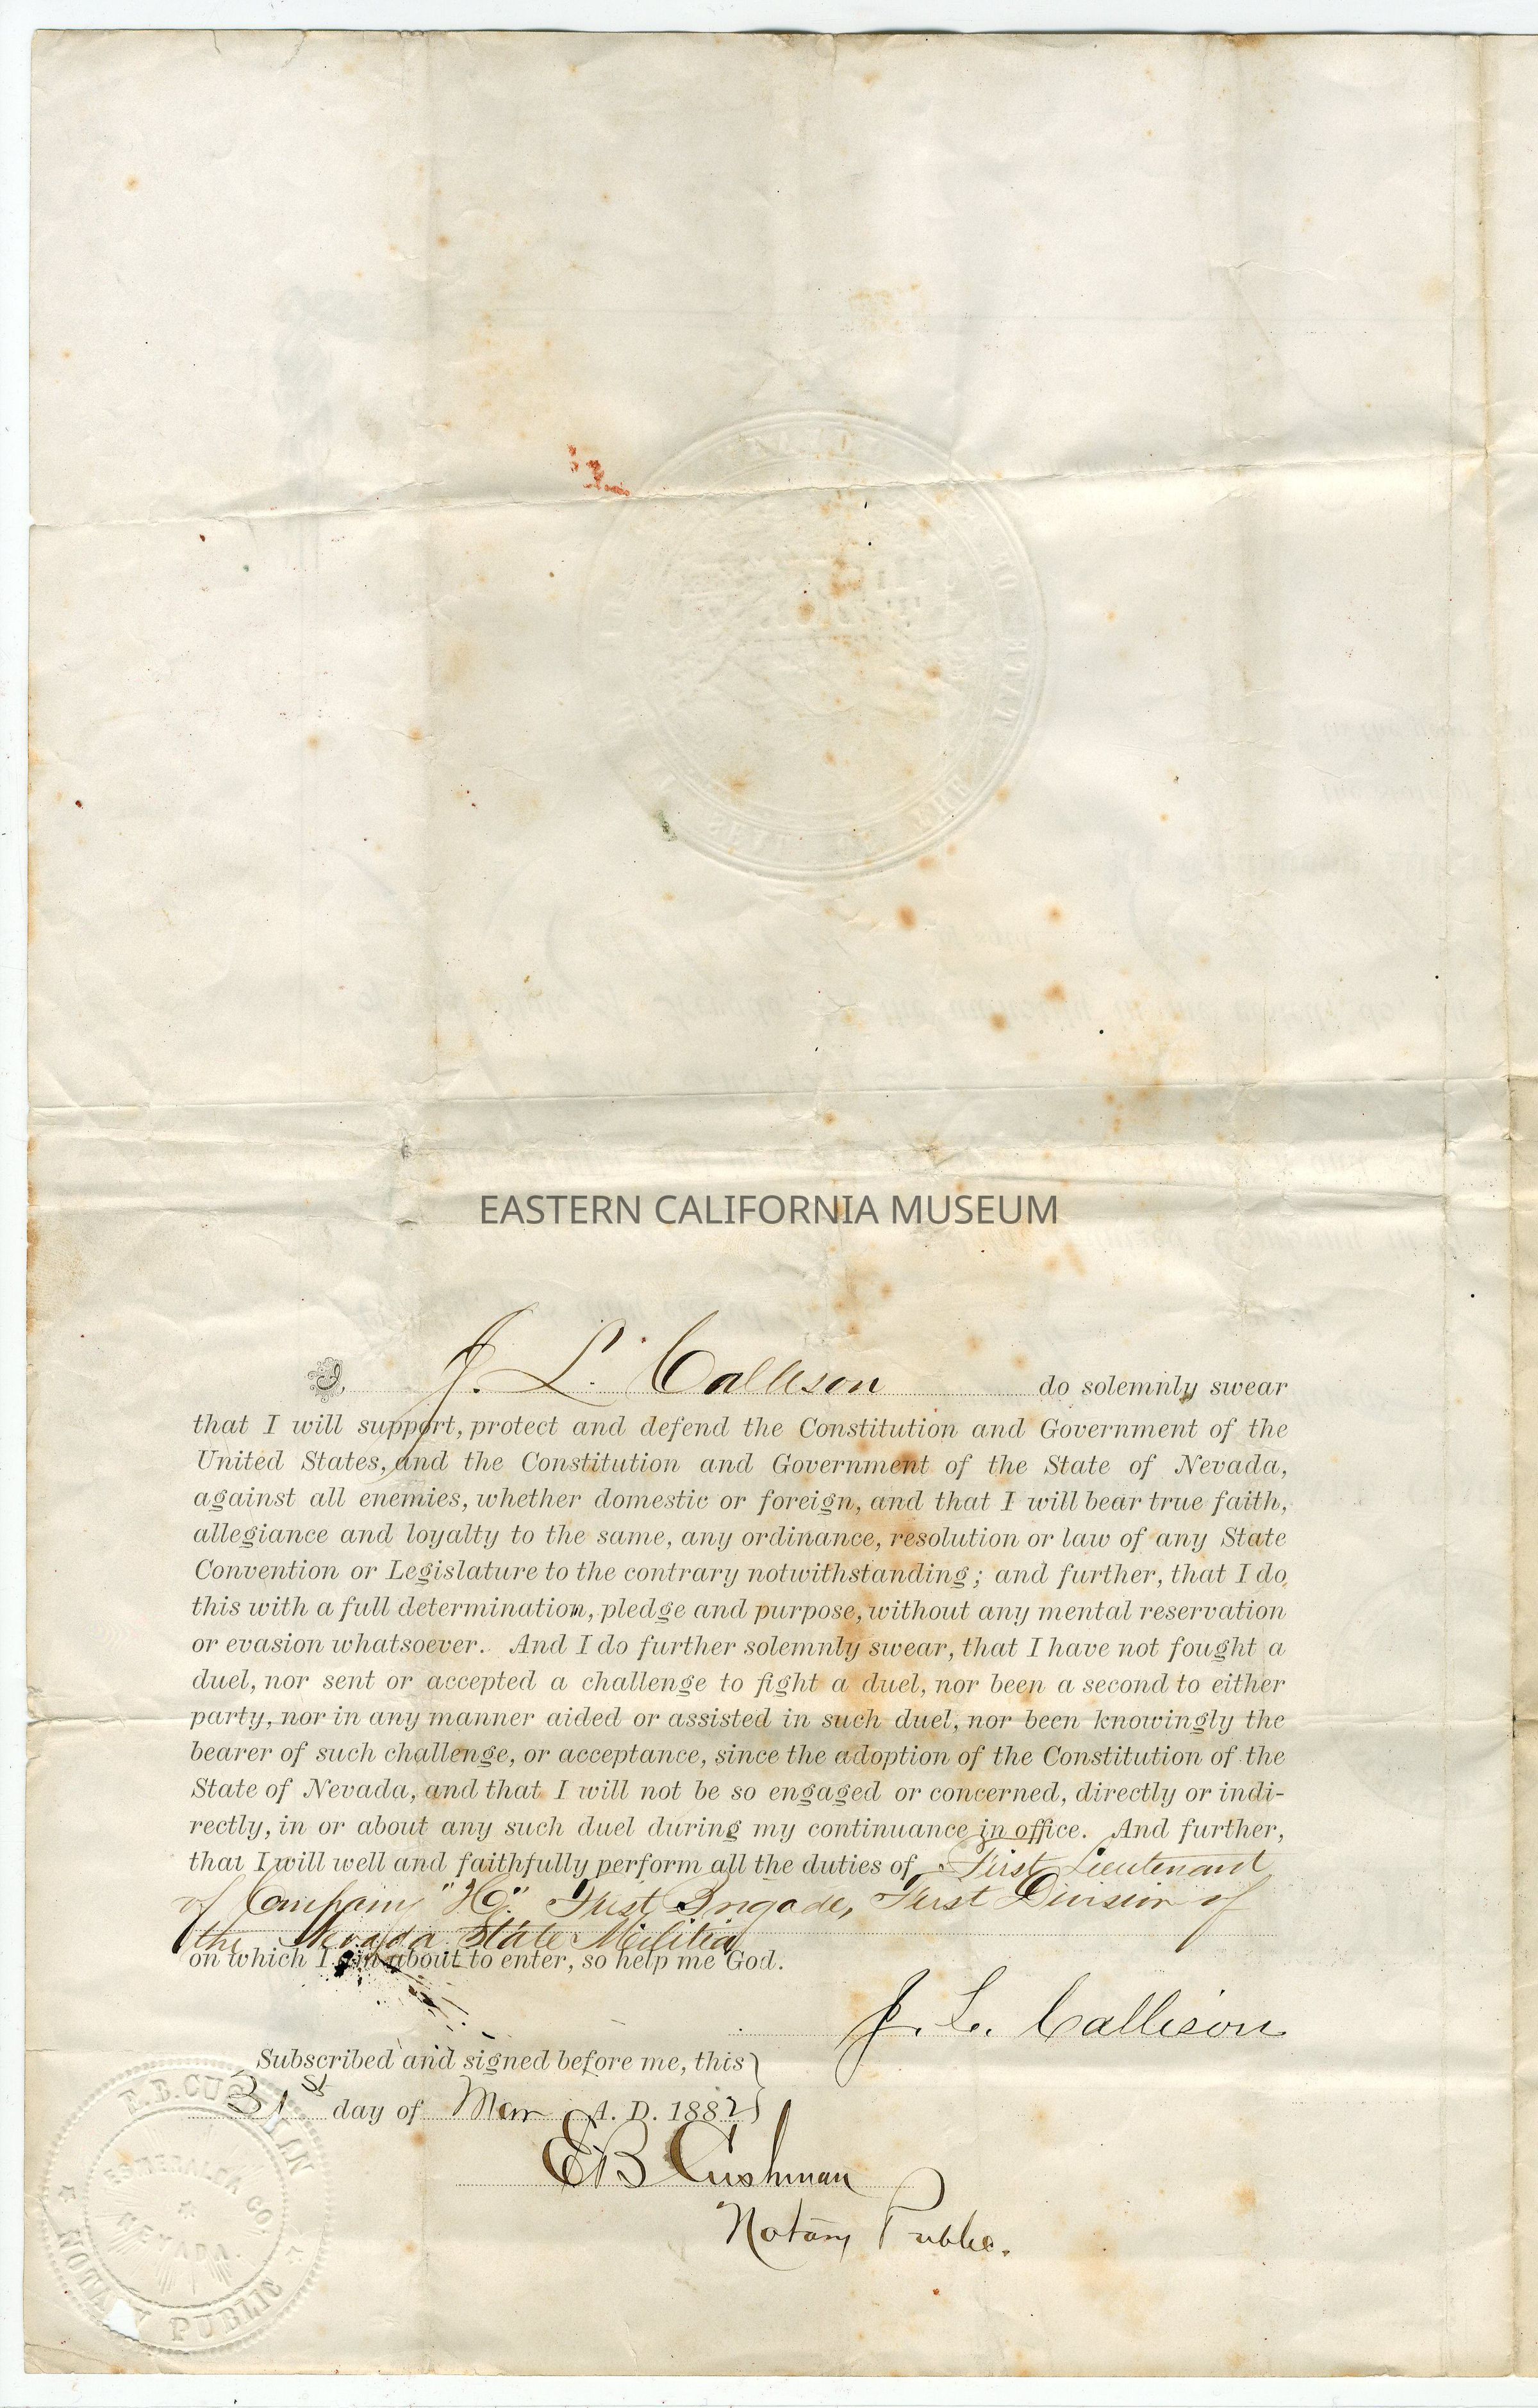 EASTERN CALIFORNIA MUSEUM
I, J. L. Callison do solemnly swear
that I will support, protect and defend the Constitution and Government of the
United States, and the Constitution and Government of the State of Nevada,
against all enemies, whether domestic or foreign, and that I will bear true faith,
allegiance and loyalty to the same, any ordinance, resolution or law of any State
Convention or Legislature to the contrary notwithstanding; and further, that I do
this with a full determination, pledge and purpose, without any mental reservation
or evasion whatsoever. And I do further solemnly swear, that I have not fought a
duel, nor sent or accepted a challenge to fight a duel, nor been a second to either
party, nor in any manner aided or assisted in such duel, nor been knowingly the
bearer of such challenge, or acceptance, since the adoption of the Constitution of the
State of Nevada, and that I will not be so engaged or concerned, directly or indi-
rectly, in or about any such duel during my continuance in office. And further,
that I will well and faithfully perform all the duties of First Lieutenant
of Company First Brigade, First Division of
the Nevada State Militia
on which I am about to enter, so help me God.
J. L. Callison
Subscribed and signed before me, this
31st day of Mar A. D. 1882
E B Cushman
Notary Public.
E. B. CUSHMAN
ESMERALDA CO.
NEVADA
NOTARY PUBLIC